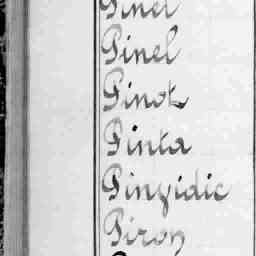 Pinel
Pinel
Pinot
Pinta
Pinzidic
Piron